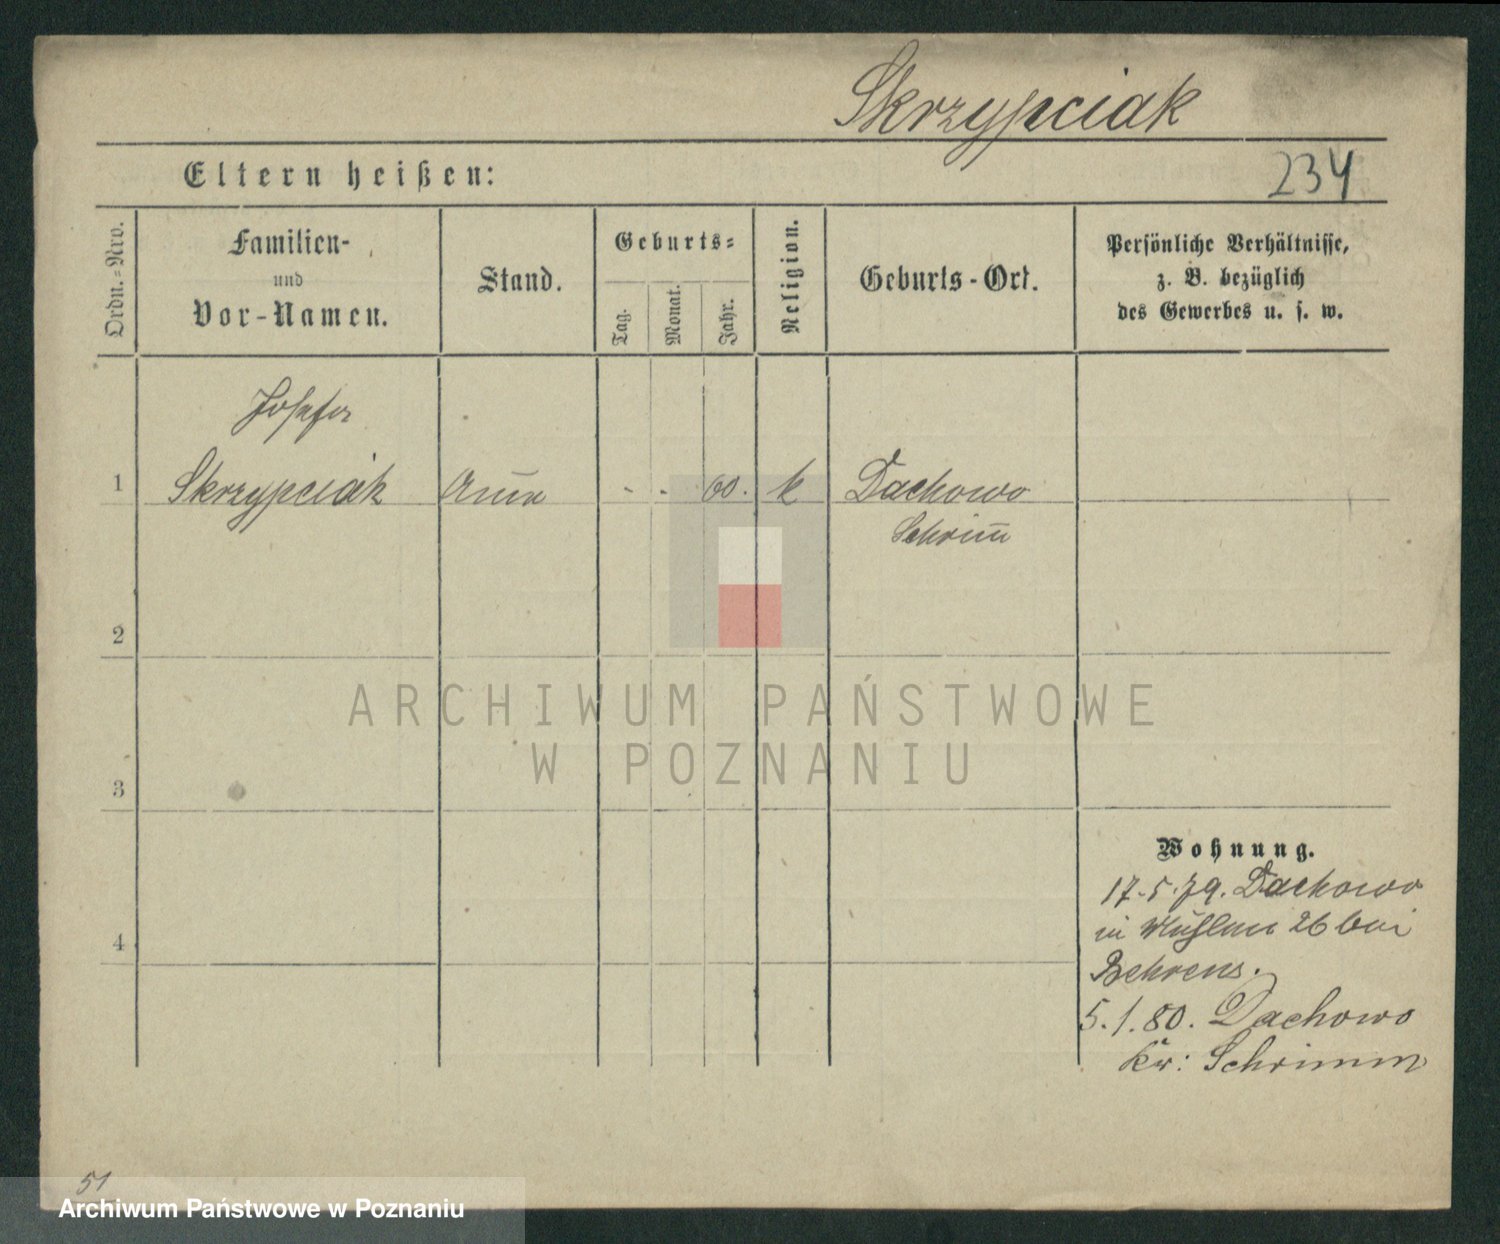 Skrzypciak
Eltern heißen:
234
Ordn.-Nro.
Familien-
und
Vor-Namen.
Stand.
Geburts-
Tag.
Monat.
Jahr.
Religion.
Geburts-Ort.
Persönliche Verhältnisse,
z. B. bezüglich
des Gewerbes u. s. w.
1
Skrzypciak
- - 60. k
Dachowo
Schrim̄
2
3
4
Wohnung.
17.5.79. Dachowo
in Mühlen 26 bei
Behrens.
5.1.80. Dachowo
Kr: Schrimm
51
ARCHIWUM PAŃSTWOWE
W POZNANIU
Archiwum Państwowe w Poznaniu